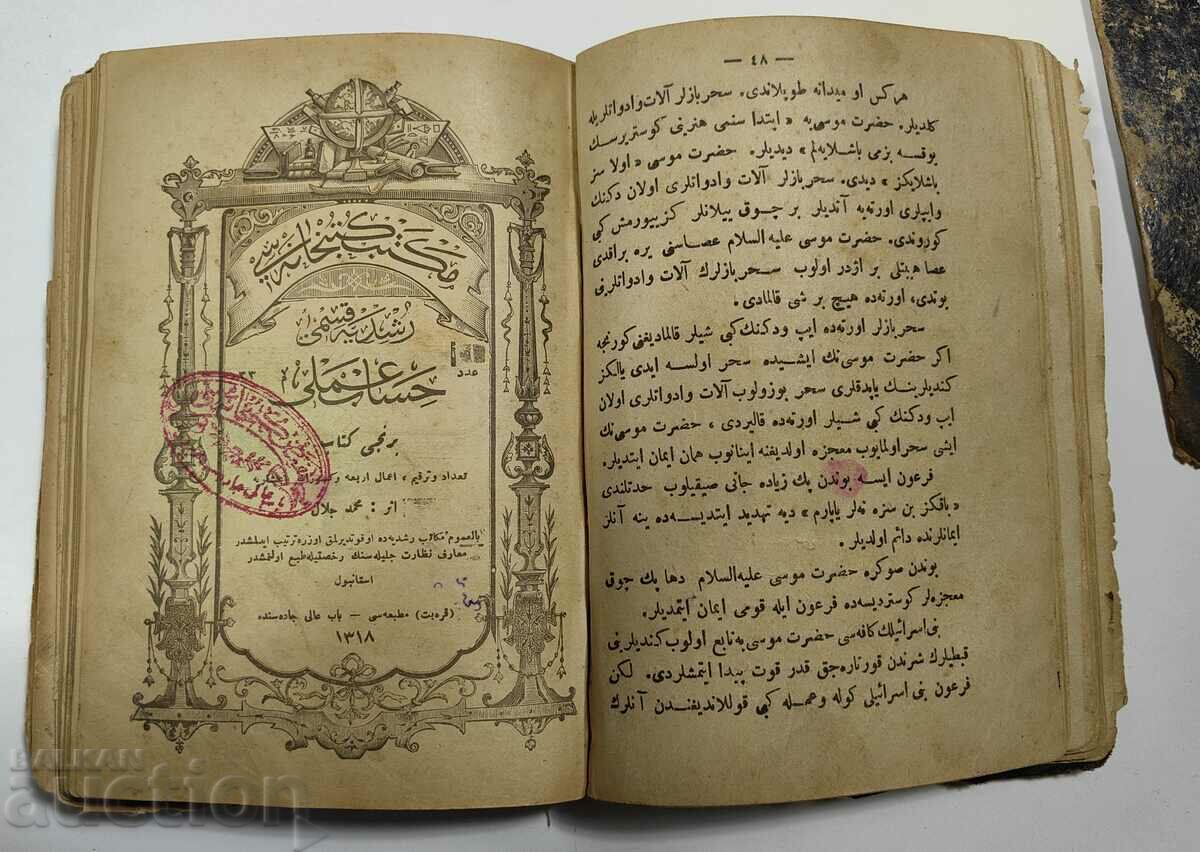 — ٤٨ —
هركس او ميدانه طوپلاندى. سحربازلر آلات وادواتلريله
كلديلر. حضرت موسى‌يه « ابتدا سنمى هنرينى كوستريرسك
يوقسه بزمى باشلايه‌لم » ديديلر. حضرت موسى « اولا سز
باشلايكز » ديدى. سحربازلر آلات وادواتلرى اولان دكنك
وايپلرى اورته‌يه آتديلر بر چوق ييلانلر كزييورمش كبى
كوروندى. حضرت موسى عليه السلام عصاسنى يره براقدى
عصا هيبتلى بر اژدر اولوب سحربازلرك آلات وادواتلرينى
يوتدى، اورته‌ده هيچ بر شى قالمادى.
سحربازلر اورته‌ده ايپ ودكنك كبى شيلر قالماديغنى كورنجه
اكر حضرت موسى‌نك ايشيده سحر اولسه ايدى يالكز
كنديلرينك ياپدقلرى سحر بوزولوب آلات وادواتلرى اولان
ايپ ودكنك كبى شيلر اورته‌ده قاليردى ، حضرت موسى‌نك
ايشى سحر اولمايوب معجزه اولديغنه اينانوب همان ايمان ايتديلر.
فرعون ايسه بوندن پك زياده جانى صيقيلوب حدتلندى
« باقكز بن سزه نه‌لر ياپارم » ديه تهديد ايتديسه‌ده ينه آنلر
ايمانلرنده دائم اولديلر.
بوندن صوكره حضرت موسى عليه السلام دها پك چوق
معجزه‌لر كوسترديسه‌ده فرعون ايله قومى ايمان ايتمديلر.
بنى اسرائيلك كافه‌سى حضرت موسى‌يه تابع اولوب كنديلرينى
قبطيلرك شرندن قورتاره‌جق قدر قوت پيدا ايتمشلردى. لكن
فرعون بنى اسرائيلى كوله وحمله كبى قوللانديغندن آنلرك
مكتب كتبخانه‌سى
رشديه قسمى
عدد
حساب عملى
برنجى كتاب
تعداد وترقيم ، اعمال اربعه
اثر : محمد جلال
بالعموم مكاتب رشديه‌ده اوقوتديرلمق اوزره ترتيب ايدلمشدر
معارف نظارت جليله‌سنك رخصتيله طبع اولنمشدر
استانبول
(قره‌بت) مطبعه‌سى — باب عالى جاده‌سنده
١٣١٨
BALKAN
auction